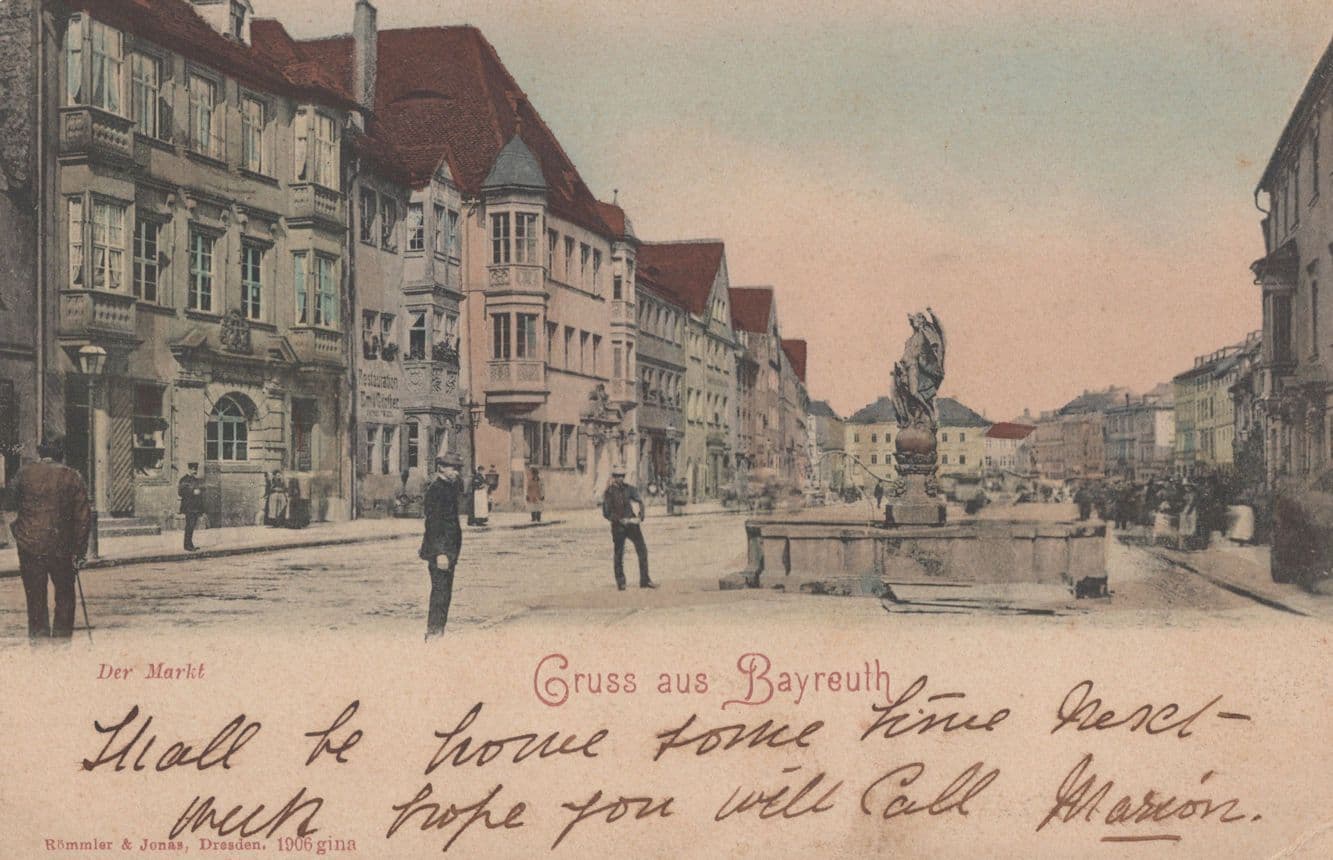 Restauration
Der Markt
Gruss aus Bayreuth
Shall be home some time next
week hope you will call Marion.
Römmler & Jonas, Dresden. 1906 gina